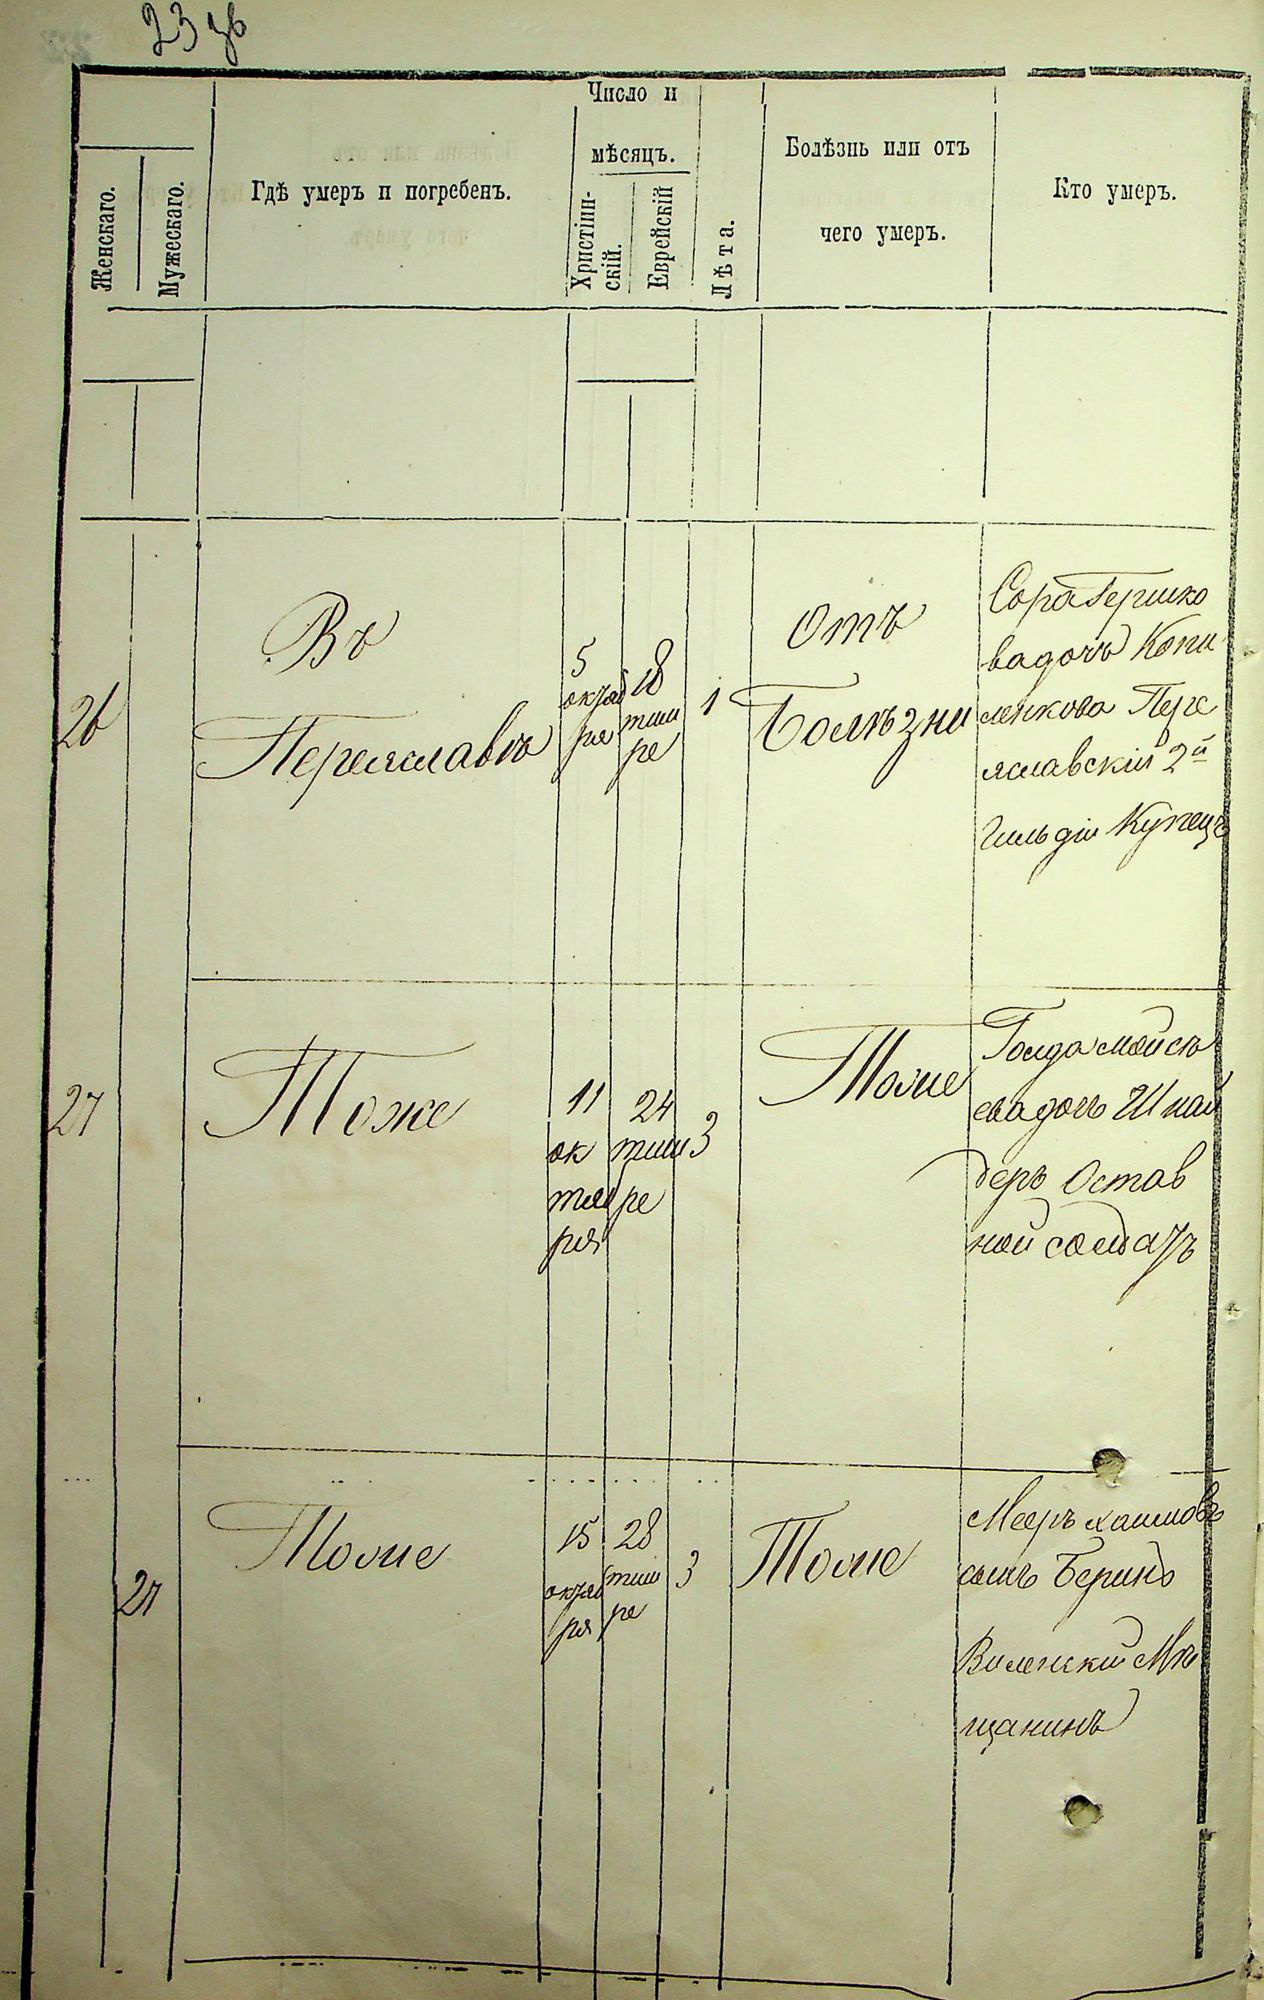 23 зв
Женскаго.
Мужескаго.
Гдѣ умеръ и погребенъ.
Число и
мѣсяцъ.
Христіан-
скій.
Еврейскій
Лѣта.
Болѣзнь или отъ
чего умеръ.
Кто умеръ.
26
Въ
Переяславѣ
5
октяб
ря
18
тиш
ре
1
Отъ
Болѣзни
Сора Гершко
ва дочь Копи
ленкова Пере
яславскій 2й
Гильдіи Купецъ
27
Тоже
11
ок
тяб
ря
24
тиш
ре
3
Тоже
Голда Мойсе
ева дочь Шнай
деръ Остав
ной солдатъ
27
Тоже
15
октяб
ря
28
тиш
ре
3
Тоже
Мееръ Хаимовъ
сынъ
Виленскій Мѣ
щанинъ